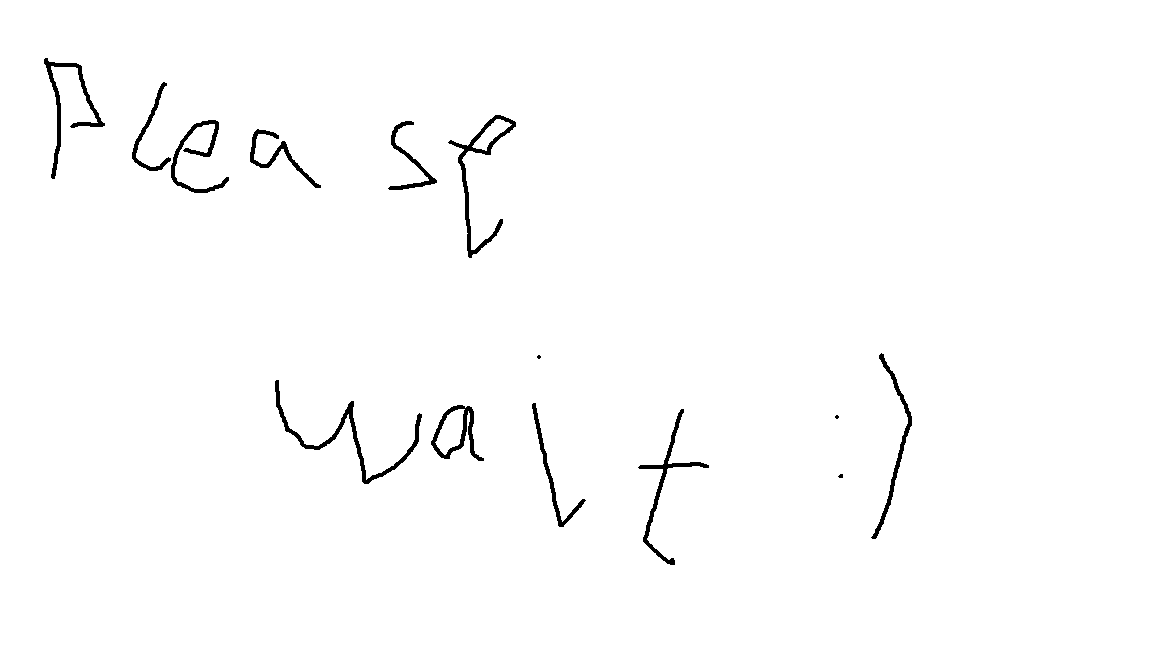 Please
wait :)